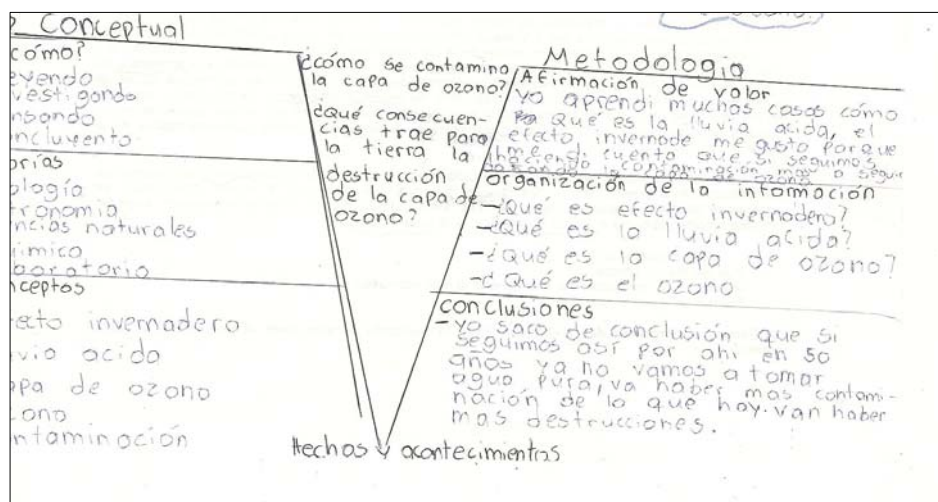 Conceptual
cómo?
eyendo
vestigando
nsando
ncluyento
orías
ología
tronomia
ncias naturales
uimico
boratorio
nceptos
ecto invernadero
via acida
apa de ozono
zono
ntaminación
¿cómo se contamina
la capa de ozono?
¿Qué consecuen-
cias trae para
la tierra la
destrucción
de la capa de
ozono?
Metodologia
Afirmación de valor
yo aprendi muchas cosas cómo
Qué es la lluvia acida, el
efecto invernade me gusto Porque
me di cuenta que si seguimos
haciendo la contaminasión mas a seguir
la capa de ozono
organización de la información
-¿Qué es efecto invernadero?
-¿Qué es la lluvia acida?
-¿Qué es la capa de ozono?
-¿Qué es el ozono
conclusiones
-yo saco de conclusión que si
seguimos así por ahi en 50
años ya no vamos a tomar
agua pura, va haber mas contami-
nación de lo que hay. van haber
mas destrucciones.
Hechos y acontecimientos